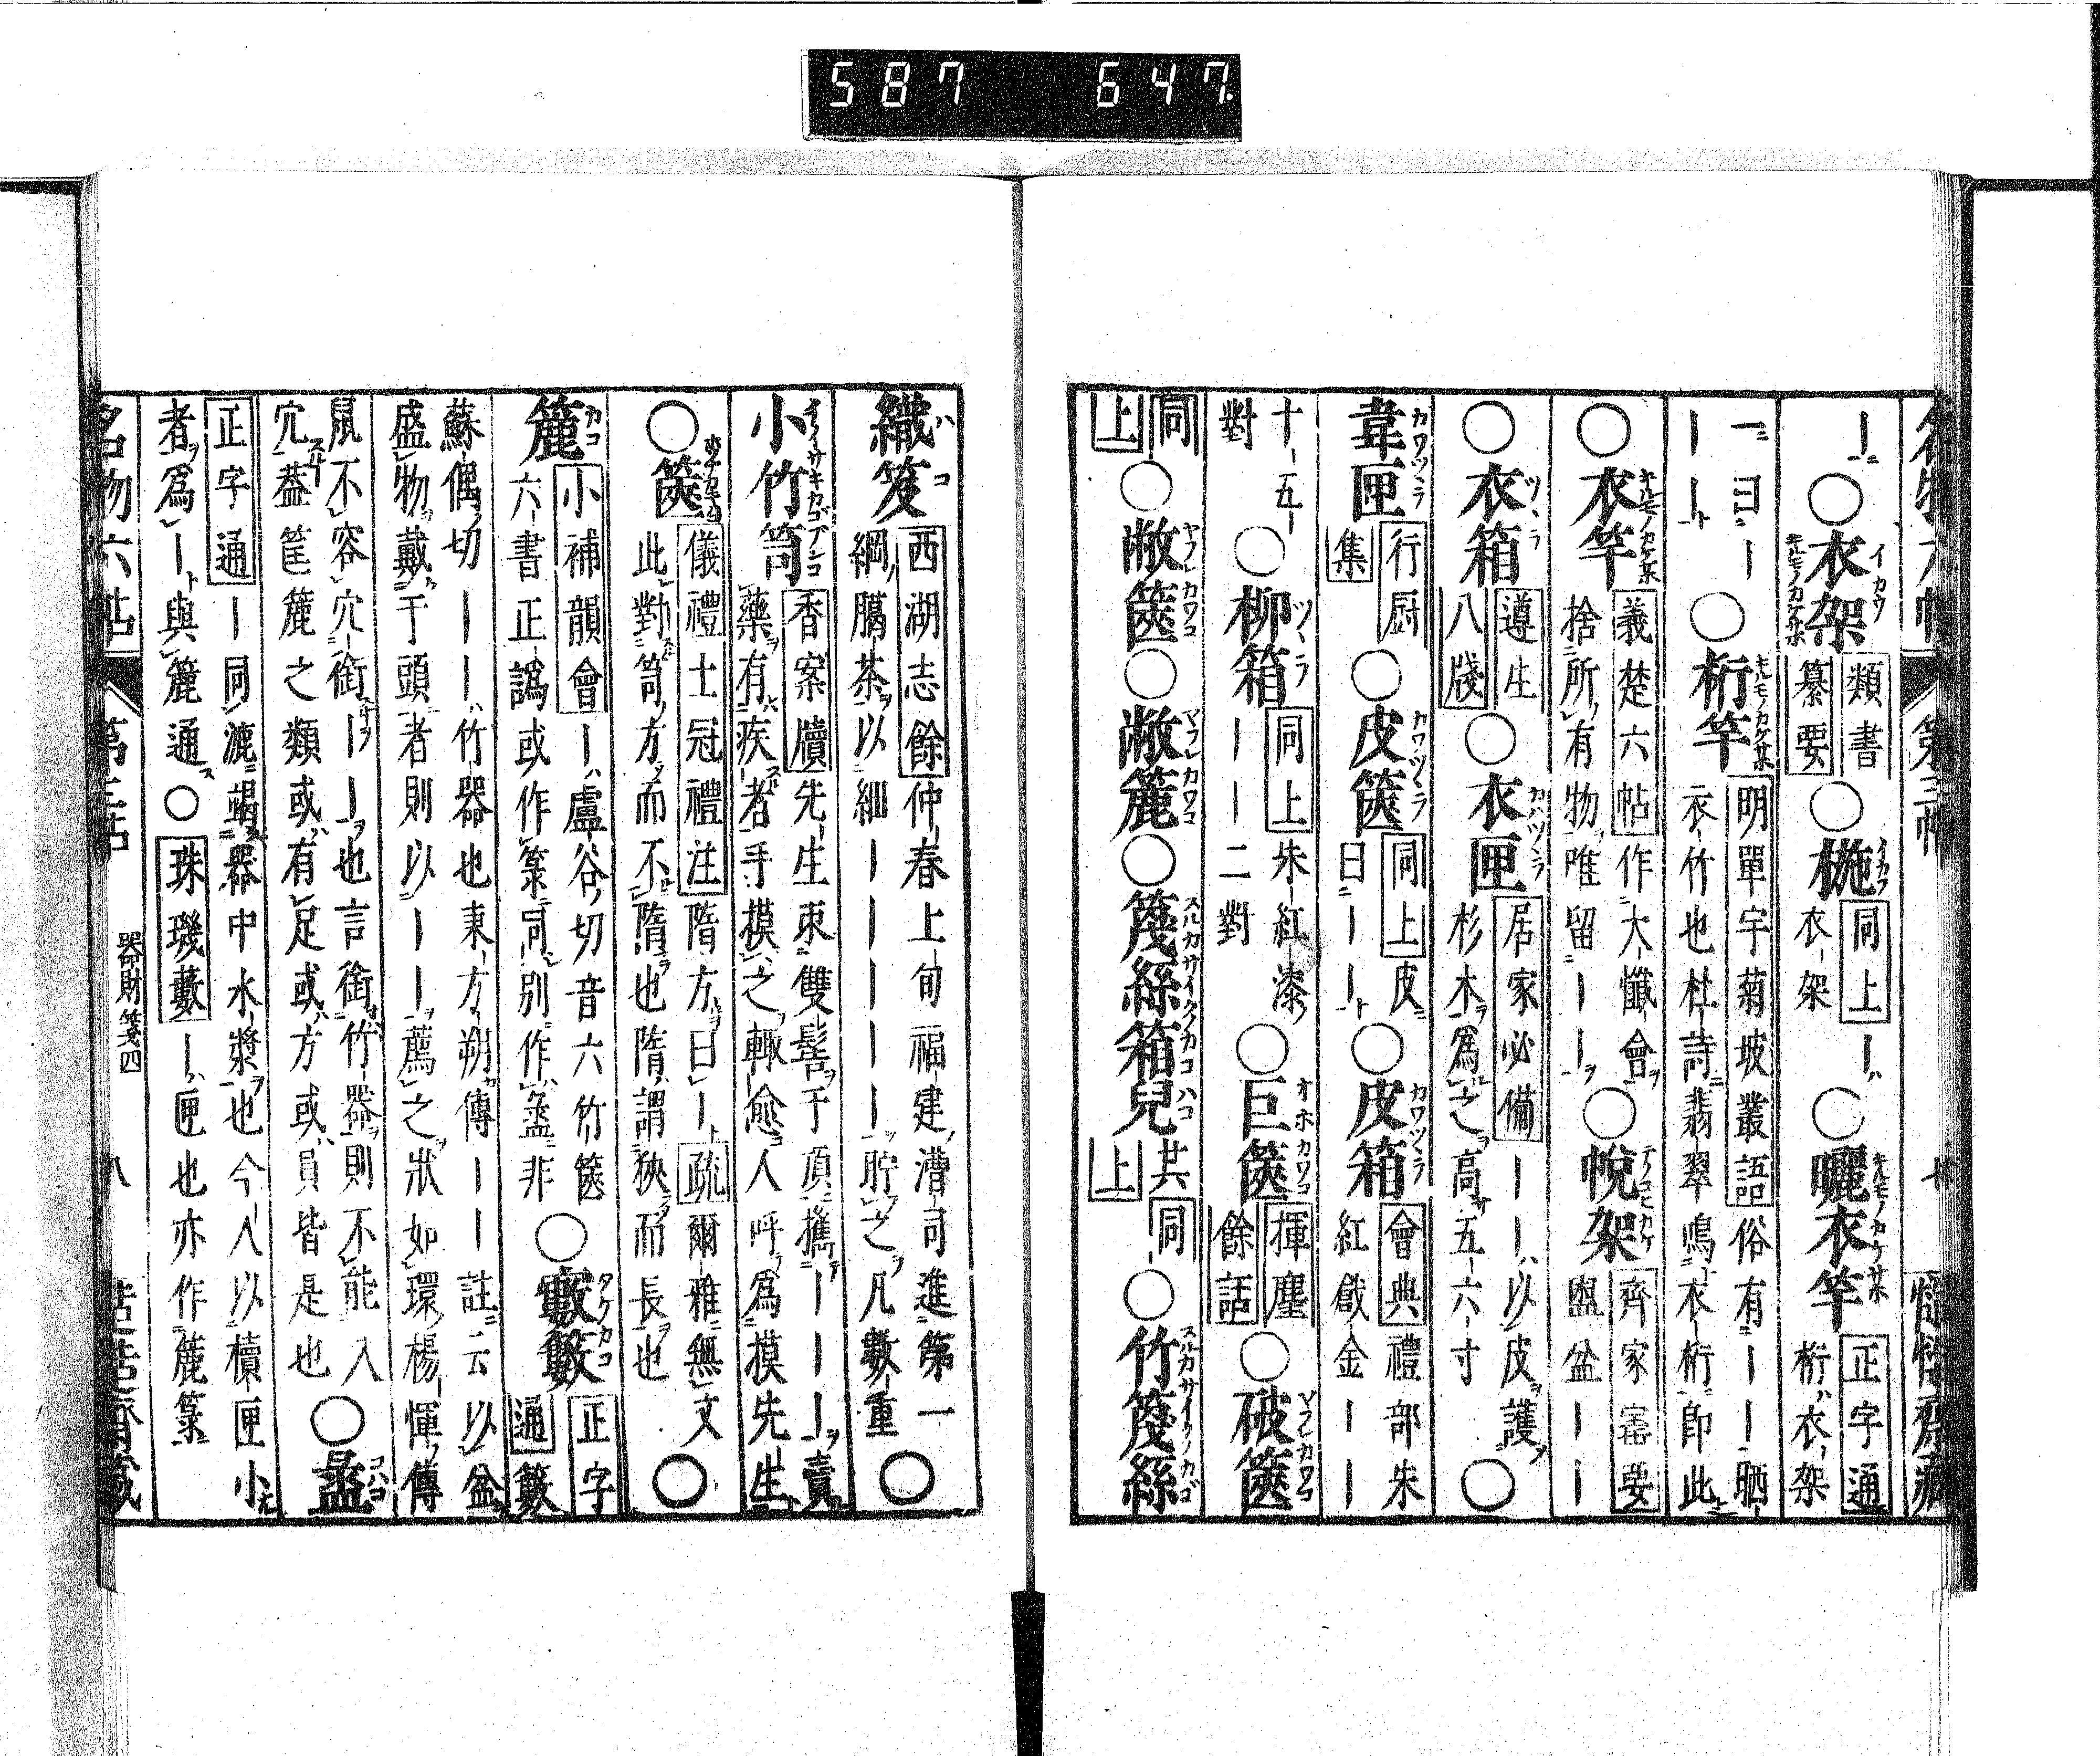 587 647.
丨○衣架 類書纂要 ○椸 同上 丨衣架 ○曬衣竿 正字通 桁衣架
一曰丨丨丨 ○桁竿 明單宇菊坡叢語 俗有丨丨晒衣竹也杜詩翡翠鳴衣桁即此
○衣竿 義楚六帖 作大懺會捨所有物唯留丨丨 ○帨架 齊家寶要 盥盆丨丨
○衣箱 遵生八牋 ○衣匣 居家必備 丨丨以皮護杉木爲之高五六寸 ○
韋匣 行厨集 ○皮篋 同上 皮曰丨丨 ○皮箱 會典 禮部朱紅戧金丨丨
十五對 ○柳箱 同上 朱紅漆丨丨二對 ○巨篋 揮麈餘話 ○破篋
同上 ○敝篋 ○敝簏 ○篾絲箱兒 共同上 ○竹篾絲
織笈 西湖志餘 仲春上旬福建漕司進第一綱臈茶以細丨丨丨丨丨貯之凡數重 ○
小竹笥 香案牘 先生束雙髻于頂攜丨丨丨賣藥有疾者手摸之輙愈人呼爲摸先生
○篋 儀禮士冠禮注 隋方曰丨 疏 爾雅無文此對笥方而不隋也隋謂狹而長也 ○
簏 小補韻會 丨盧谷切音六竹篋六書正譌或作箓同別作盝非 ○寠籔 正字通 籔
蘇偶切丨丨竹器也東方朔傳丨丨註云以盆盛物戴于頭者則以丨丨薦之狀如環楊惲傳
鼠不容穴銜丨丨也言銜竹器則不能入穴蓋筐簏之類或有足或方或員皆是也 ○盝
正字通 丨同漉竭器中水漿也今人以櫝匣小者爲丨與簏通 ○ 珠璣藪 丨匣也亦作簏箓
名物六帖 第三帖 器財箋四